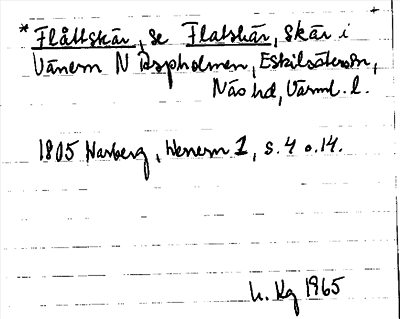 * Flåttskär, se Flatskär, skär i
Vänern N Aspholmen, Eskilsäters sn,
Näs hd, Värml. l.
1805 Warberg, Wenern 1, s. 4 o. 14.
h. Kg 1965